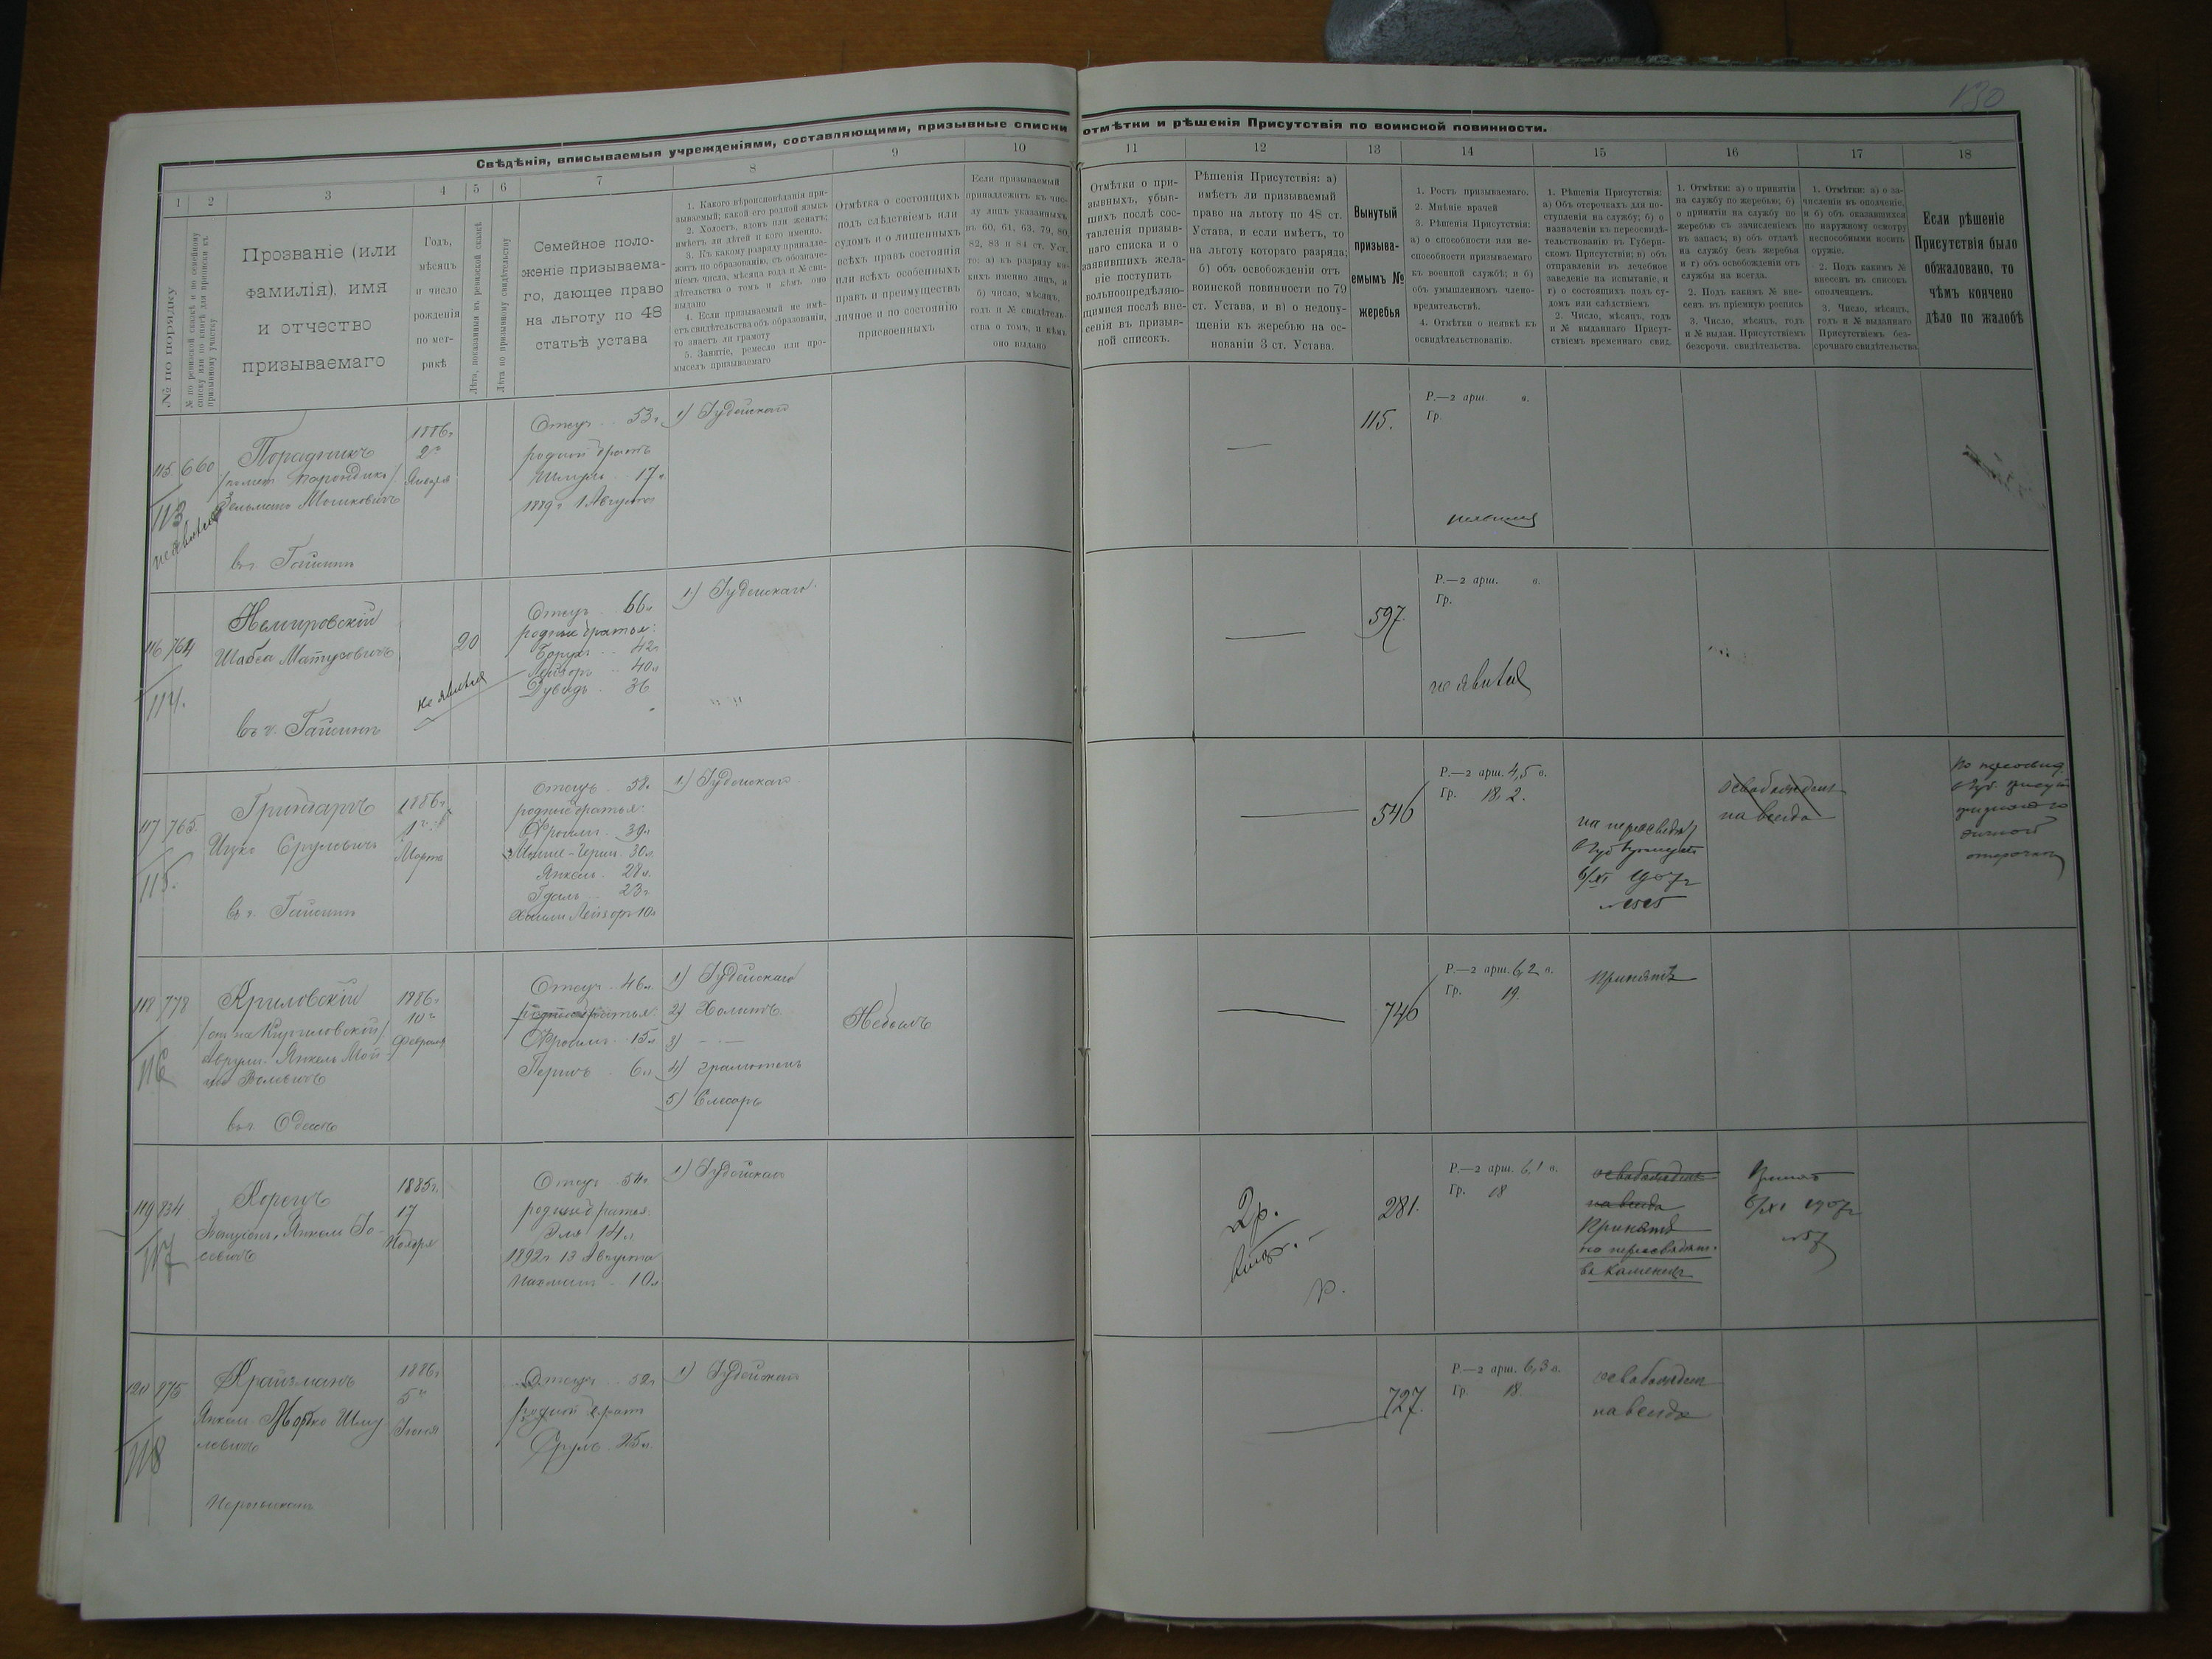 130
Свѣдѣнія, вписываемыя учрежденіями, составляющими, призывные списки
отмѣтки и рѣшенія Присутствія по воинской повинности.
1 2 3 4 5 6 7 8 9 10
11 12 13 14 15 16 17 18
№ по порядку
№ по ревизской сказкѣ и по семейному
списку или по книгѣ для приписки къ
призывному участку
Прозваніе (или
фамилія), имя
и отчество
призываемаго
Годъ,
мѣсяцъ
и число
рожденія
по мет-
рикѣ
Лѣта, показанныя въ ревизской сказкѣ
Лѣта по призывному свидѣтельству
Семейное поло-
женіе призываема-
го, дающее право
на льготу по 48
статьѣ устава
1. Какого вѣроисповѣданія при-
зываемый; какой его родной языкъ
2. Холостъ, вдовъ или женатъ;
имѣетъ ли дѣтей и кого именно.
3. Къ какому разряду принадле-
житъ по образованію, съ обозначе-
ніемъ числа, мѣсяца года и № сви-
дѣтельства о томъ и кѣмъ оно
выдано
4. Если призываемый не имѣ-
етъ свидѣтельства объ образованіи,
то знаетъ ли грамоту
5. Занятіе, ремесло или про-
мыселъ призываемаго
Отмѣтка о состоящихъ
подъ слѣдствіемъ или
судомъ и о лишенныхъ
всѣхъ правъ состоянія
или всѣхъ особенныхъ
правъ и преимуществъ
личное и по состоянію
присвоенныхъ
Если призываемый
принадлежитъ къ чис-
лу лицъ указанныхъ
въ 60, 61, 63, 79, 80,
82, 83 и 84 ст. Уст.
то: а) къ разряду ка-
кихъ именно лицъ, и
б) число, мѣсяцъ,
годъ и № свидѣтель-
ства о томъ, и кѣмъ
оно выдано
Отмѣтки о при-
зывныхъ, убыв-
шихъ послѣ сос-
тавленія призыв-
наго списка и о
заявившихъ жела-
ніе поступить
вольноопредѣляю-
щимися послѣ вне-
сенія въ призыв-
ной списокъ.
Рѣшенія Присутствія: а)
имѣетъ ли призываемый
право на льготу по 48 ст.
Устава, и если имѣетъ, то
на льготу котораго разряда;
б) объ освобожденіи отъ
воинской повинности по 79
ст. Устава, и в) о недопу-
щеніи къ жеребью на ос-
нованіи 3 ст. Устава.
Вынутый
призыва-
емымъ №
жеребья
1. Ростъ призываемаго.
2. Мнѣніе врачей
3. Рѣшенія Присутствія:
а) о способности или не-
способности призываемаго
къ военной службѣ; и б)
объ умышленномъ члено-
вредительствѣ.
4. Отмѣтки о неявкѣ къ
освидѣтельствованію.
1. Рѣшенія Присутствія:
а) Объ отсрочкахъ для по-
ступленія на службу; б) о
назначеніи къ переосвидѣ-
тельствованію въ Губерн-
скомъ Присутствіи; в) объ
отправленіи въ лечебное
заведеніе на испытаніе, и
г) о состоящихъ подъ су-
домъ или слѣдствіемъ.
2. Число, мѣсяцъ, годъ
и № выданнаго Присут-
ствіемъ временнаго свид.
1. Отмѣтки: а) о принятіи
на службу по жеребью; б)
о принятіи на службу по
жеребью съ зачисленіемъ
въ запасъ; в) объ отдачѣ
на службу безъ жеребья
и г) объ освобожденіи отъ
службы на всегда.
2. Подъ какимъ № вне-
сенъ въ пріемную роспись
3. Число, мѣсяцъ, годъ
и № выдан. Присутствіемъ
безсрочн. свидѣтельства.
1. Отмѣтки: а) о за-
численіи въ ополченіе,
и б) объ оказавшихся
по наружному осмотру
неспособными носить
оружіе.
2. Подъ какимъ №
внесенъ въ списокъ
ополченцевъ.
3. Число, мѣсяцъ,
годъ и № выданнаго
Присутствіемъ без-
срочнаго свидѣтельства.
Если рѣшеніе
Присутствія было
обжаловано, то
чѣмъ кончено
дѣло по жалобѣ
115 660
113
не явился
Порадникъ
Зельманъ Мошковичъ
въ г. Гайсинѣ
1886г
2го
Января
Отецъ 53г
родной братъ
Шмуль 17л
1889г 1 Августа
1) Іудейскаго
115.
Р.—2 арш. в.
Гр.
не явился
116 764
114.
Немировскій
Шабса Матусовичъ
въ г. Гайсинѣ
20
не явился
Отецъ 66л
родные братья:
Борухъ 42г
Лейзоръ 40л
Дувидъ 36
1) Іудейскаго
597.
Р.—2 арш. в.
Гр.
не явился
117 765
115.
Грингартъ
Ицко Сруловичъ
въ г. Гайсинѣ
1886г
1го
Марта
Отецъ 58л
родные братья:
Фроимъ 39л
30л
Янкель 28л
23г
Лейзоръ 10л
1) Іудейскаго
546
Р.—2 арш. 4,5 в.
Гр. 18,2.
на переосвидѣт
6/XI 1907г
освобожден
на всегда
отсрочка
118 778
116
Криловскій
Авруль Янкель Мой-
въ г. Одессѣ
1886г
10го
Февраля
Отецъ 46л
родные братья:
Фроимъ 15л
Гершъ 6л
1) Іудейскаго
2) Холостъ
3) —
4) Грамотенъ
5) Слесарь
Не былъ
746
Р.—2 арш. 6,2 в.
Гр. 19.
Принятъ
119 834
117
Корецъ
Янкель Іо-
севичъ
1885г
17
Ноября
Отецъ 54г
родные братья:
Эля 14л
1892г 13 Августа
Нахманъ 10л
1) Іудейскаго
2р.
281.
Р.—2 арш. 6,1 в.
Гр. 18
освобожден
на всегда
Принятъ
на переосвидѣт.
въ Каменецъ
Принятъ
6/XI 1907г
№57
120 875
118
Крайзманъ
Янкель Мордко Шму-
левичъ
1886г
5го
Іюня
Отецъ 52г
родной братъ
Сруль 25л
1) Іудейскаго
727.
Р.—2 арш. 6,3 в.
Гр. 18.
освобожден
на всегда